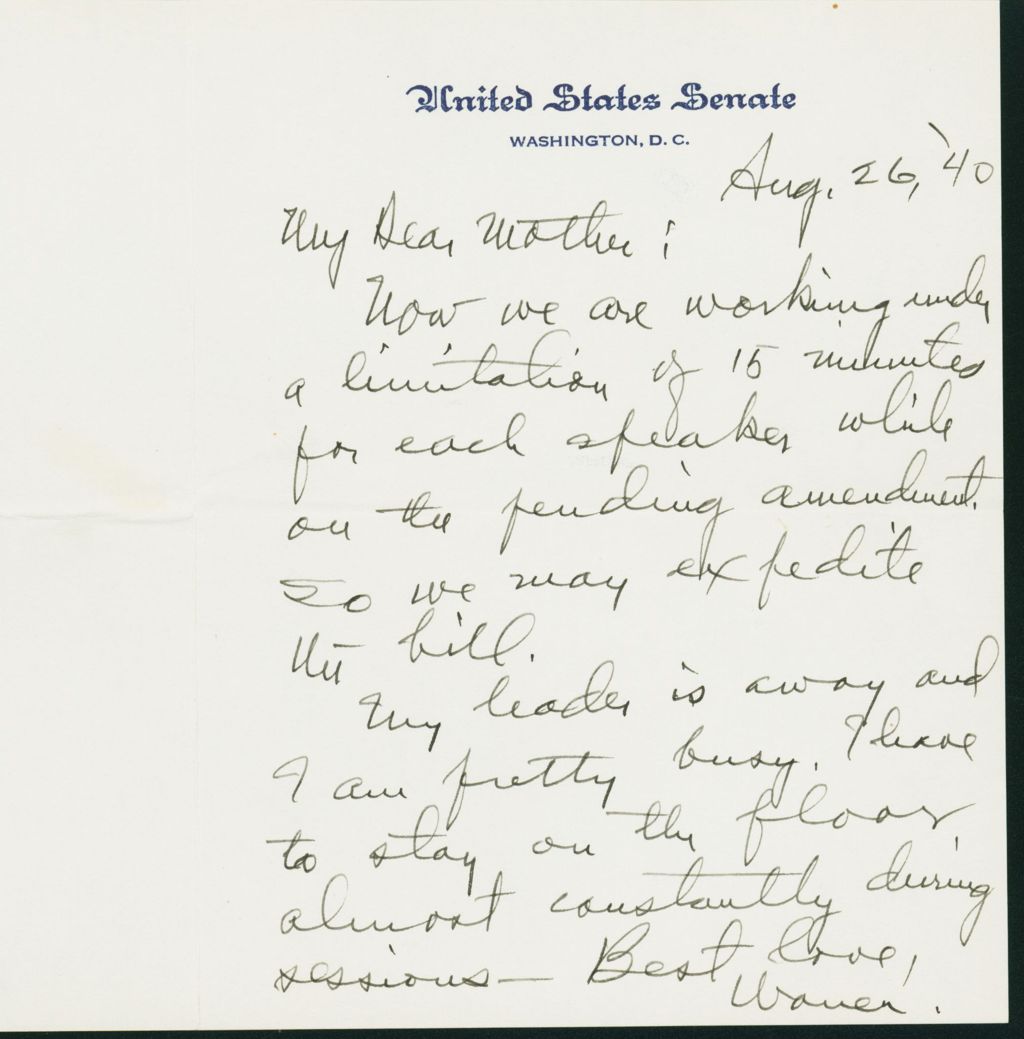 United States Senate
WASHINGTON, D. C.
Aug. 26, '40
My Dear Mother:
Now we are working under
a limitation of 15 minutes
for each speaker while
on the pending amendment.
So we may expedite
the bill.
My leader is away and
I am pretty busy. I have
to stay on the floor
almost constantly during
sessions— Best love,
Warren.